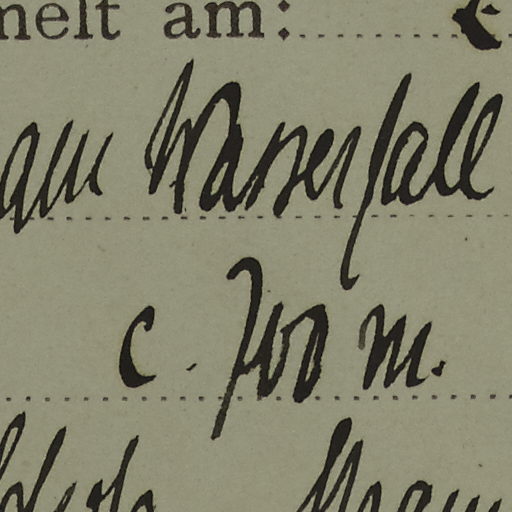 melt am:
am Wasserfall
c. 700 m.